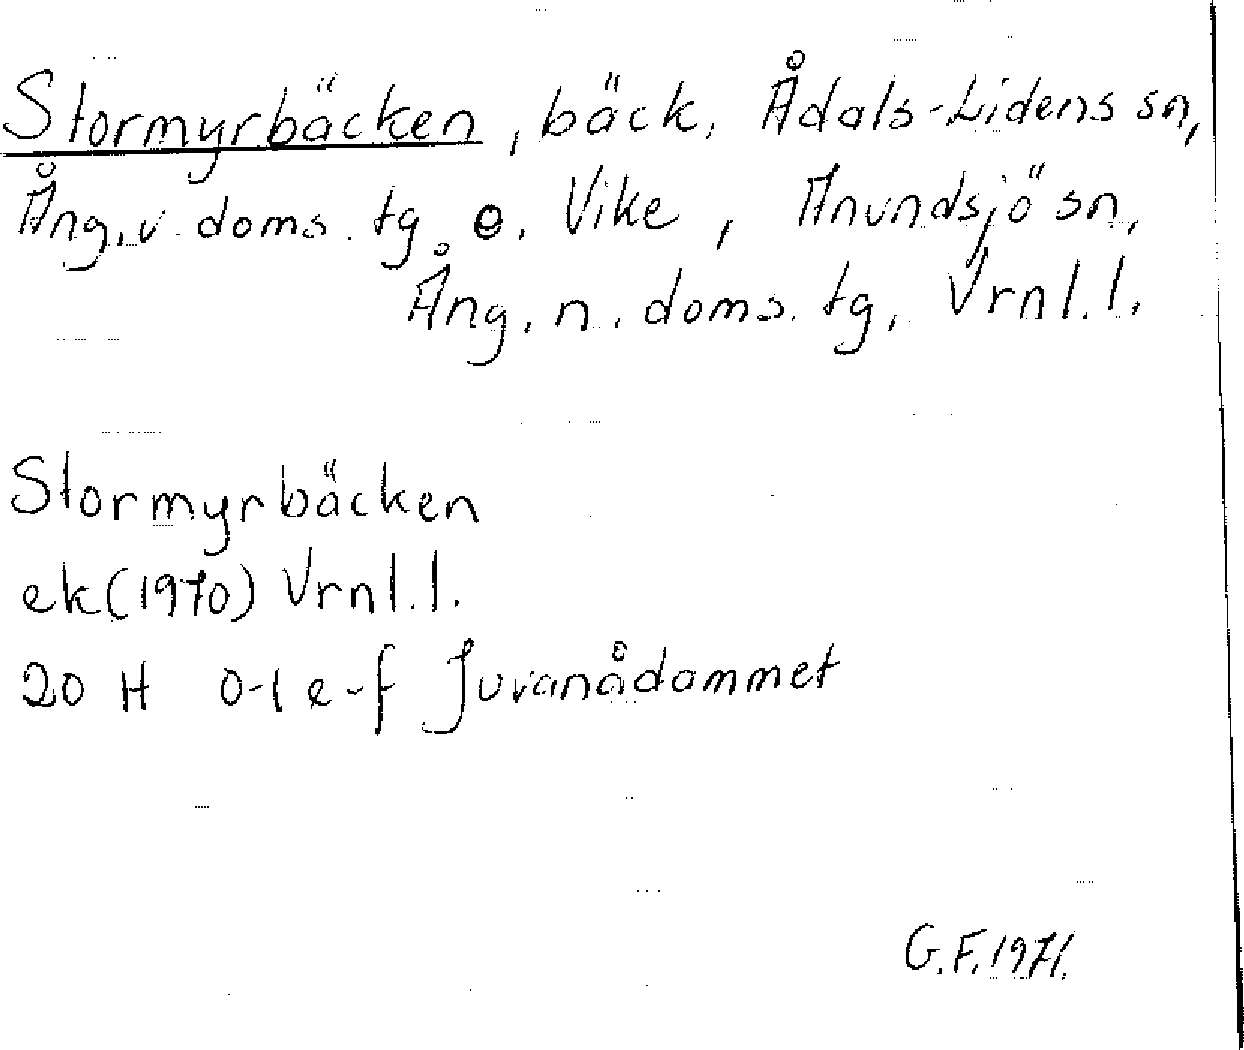 Stormyrbäcken, bäck, Ådals-Lidens sn,
Ång. v. doms. tg. e. Vike, Anundsjö sn,
Ång. n. doms. tg, Vrnl. l.
Stormyrbäcken
ek (1970) Vrnl. l.
20 H 0-1 e-f Juvanådammet
G.F. 1971.